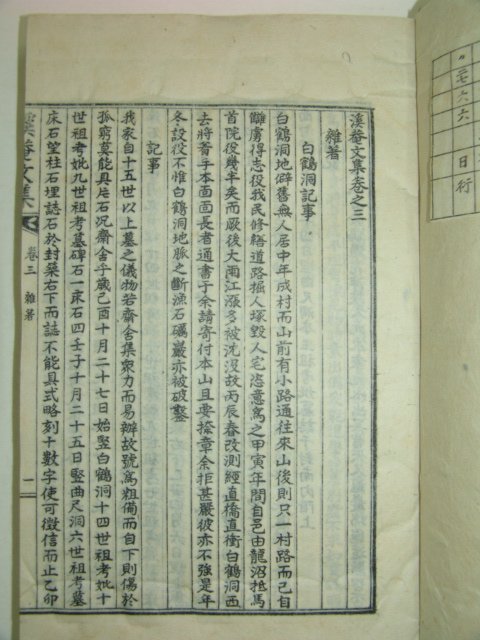 溪菴文集卷之三
雜著
白鶴洞記事
白鶴洞地僻舊無人居中年成村而山前有小路通往來山後則只一村路而已自
讎虜得志役我民修繕道路掘人塚毁人宅恣意爲之甲寅年間自邑由龍沼抵馬
首院役幾半矣而厥後大雨江漲多被沈沒故丙辰春改測經直橋直衝白鶴洞西
去將着手本面面長者通書于余請寄付本山且要捺章余拒甚嚴彼亦不強是年
冬設役不惟白鶴洞地脈之斷漁石礪巖亦被破鑿
記事
我家自十五世以上墓之儀物若齋舍集衆力而易辦故號爲粗備而自下則傷於
孤窮莫能具片石況齋舍乎歲己酉十月二十七日始竪白鶴洞十四世祖考妣十
世祖考妣九世祖考墓碑石一床石四壬子十月二十五日竪曲尺洞六世祖考墓
床石望柱石埋誌石於封築右下而誌不能具式略刻十數字使可徵信而止乙卯
溪菴文集
卷三 雜著
一
日行